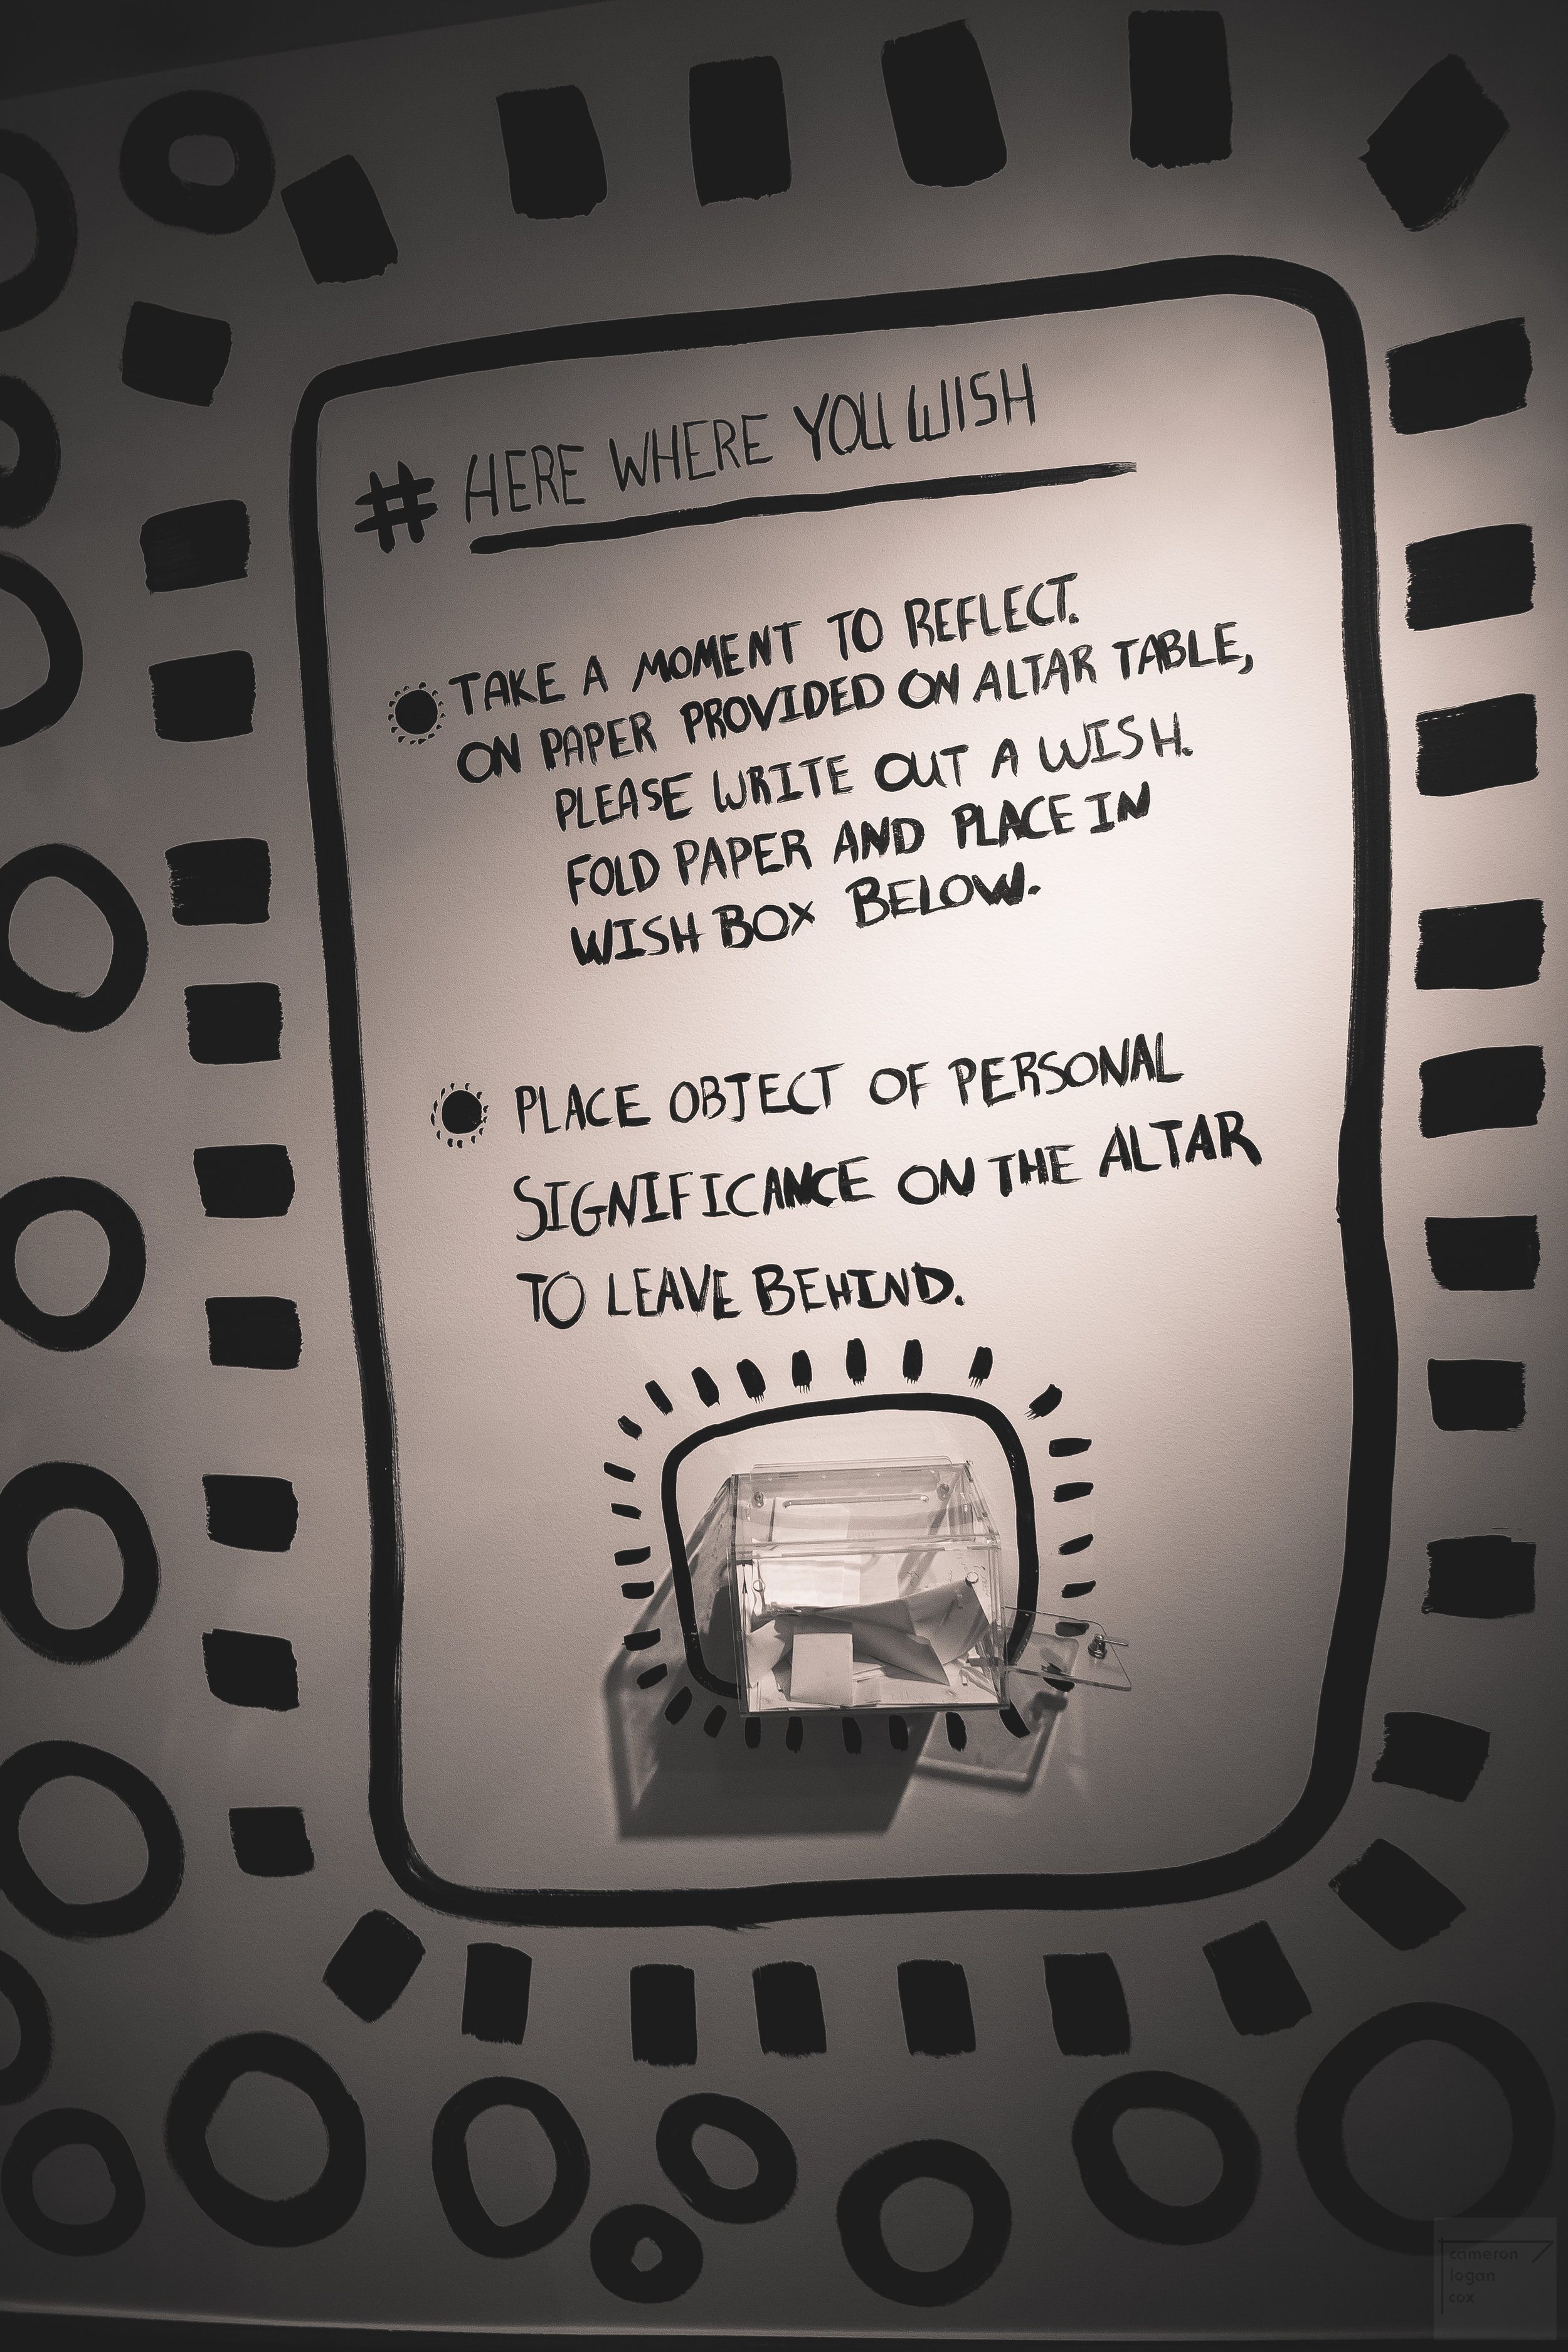 # HERE WHERE YOU WISH
TAKE A MOMENT TO REFLECT.
ON PAPER PROVIDED ON ALTAR TABLE,
PLEASE WRITE OUT A WISH.
FOLD PAPER AND PLACE IN
WISH BOX BELOW.
PLACE OBJECT OF PERSONAL
SIGNIFICANCE ON THE ALTAR
TO LEAVE BEHIND.
cameron
logan
cox